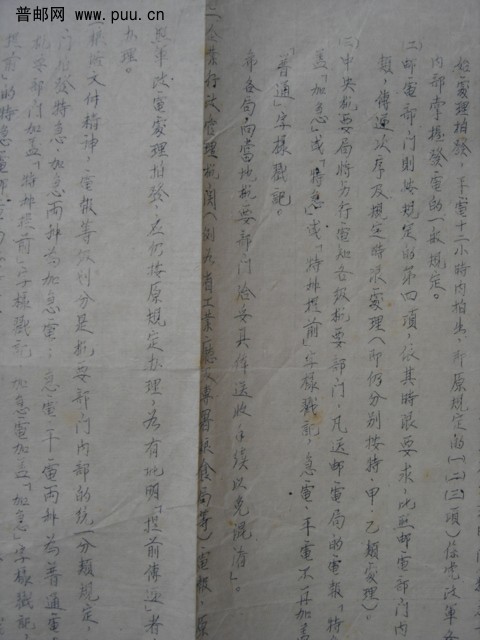 普邮网 www.puu.com.cn
始处理拍发、平电十二小时内拍出,即原规定的(一)(二)(三)项)系党政军
内部掌握发电的一般规定。
(二)邮电部门则按规定的第四项,依其时限要求,比照邮电部门内
类,传递次序及规定时限处理(即仍分别按特、甲、乙类处理)。
(三)中央机要局将另行电知各级机要部门,凡送邮电局的电报「特
盖「加急」或「特急」或「特排提前」字样戳记,急电、平电不再加盖
「普通」字样戳记。
希各局,向当地机要部门洽妥具体送收手续以免混淆」。
行政管理机关(例如省工业厅、
粮食局等)电报,原
照军政电处理拍发,应仍按原规定办理,如有批明「提前传递」者
办理。
根据文件精神,电报等级划分是机要部门内部的统一分类规定,
门凡发特急、加急两种为加急电;急电、平电两种为普通电
机要部门加盖「特排提前」字样戳记,加急电加盖「加急」字样戳记,
提前」的特急电